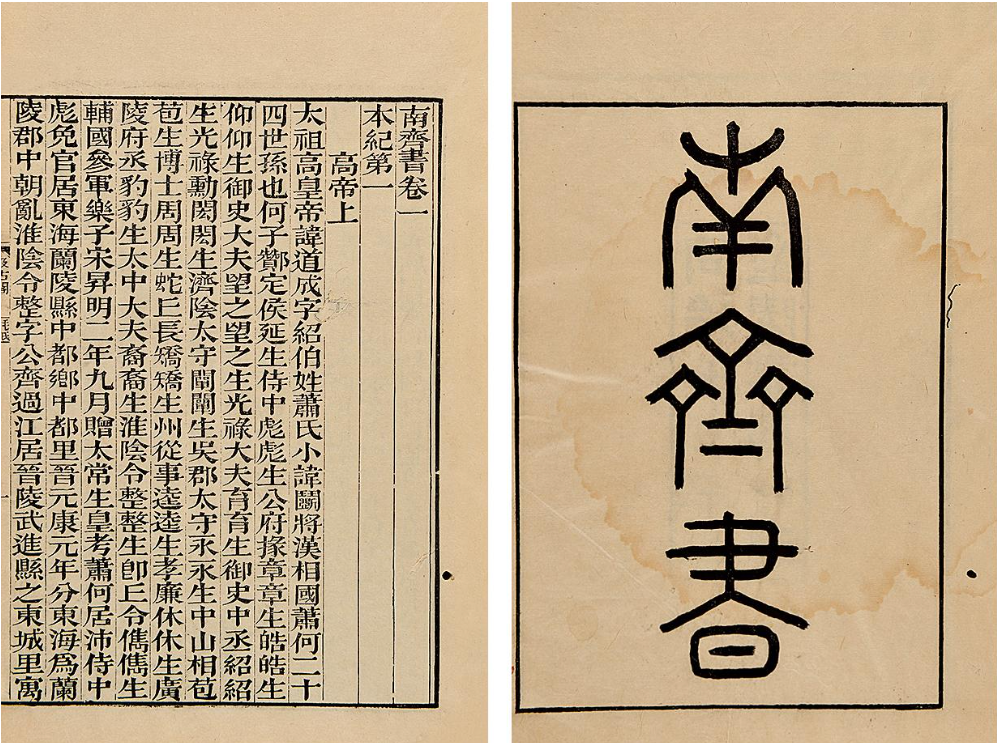 南齊書
南齊書卷一
本紀第一
高帝上
太祖高皇帝諱道成字紹伯姓蕭氏小諱鬭將漢相國蕭何二十
四世孫也何子酇定侯延生侍中彪彪生公府掾章章生皓皓生
仰仰生御史大夫望之望之生光祿大夫育育生御史中丞紹紹
生光祿勳閎閎生濟陰太守闡闡生吳郡太守永永生中山相苞
苞生博士周周生蛇丘長矯矯生州從事逵逵生孝廉休休生廣
陵府丞豹豹生太中大夫裔裔生淮陰令整整生卽丘令儁儁生
輔國參軍樂子宋昇明二年九月贈太常生皇考蕭何居沛侍中
彪免官居東海蘭陵縣中都鄉中都里晉元康元年分東海爲蘭
陵郡中朝亂淮陰令整字公齊過江居晉陵武進縣之東城里寓